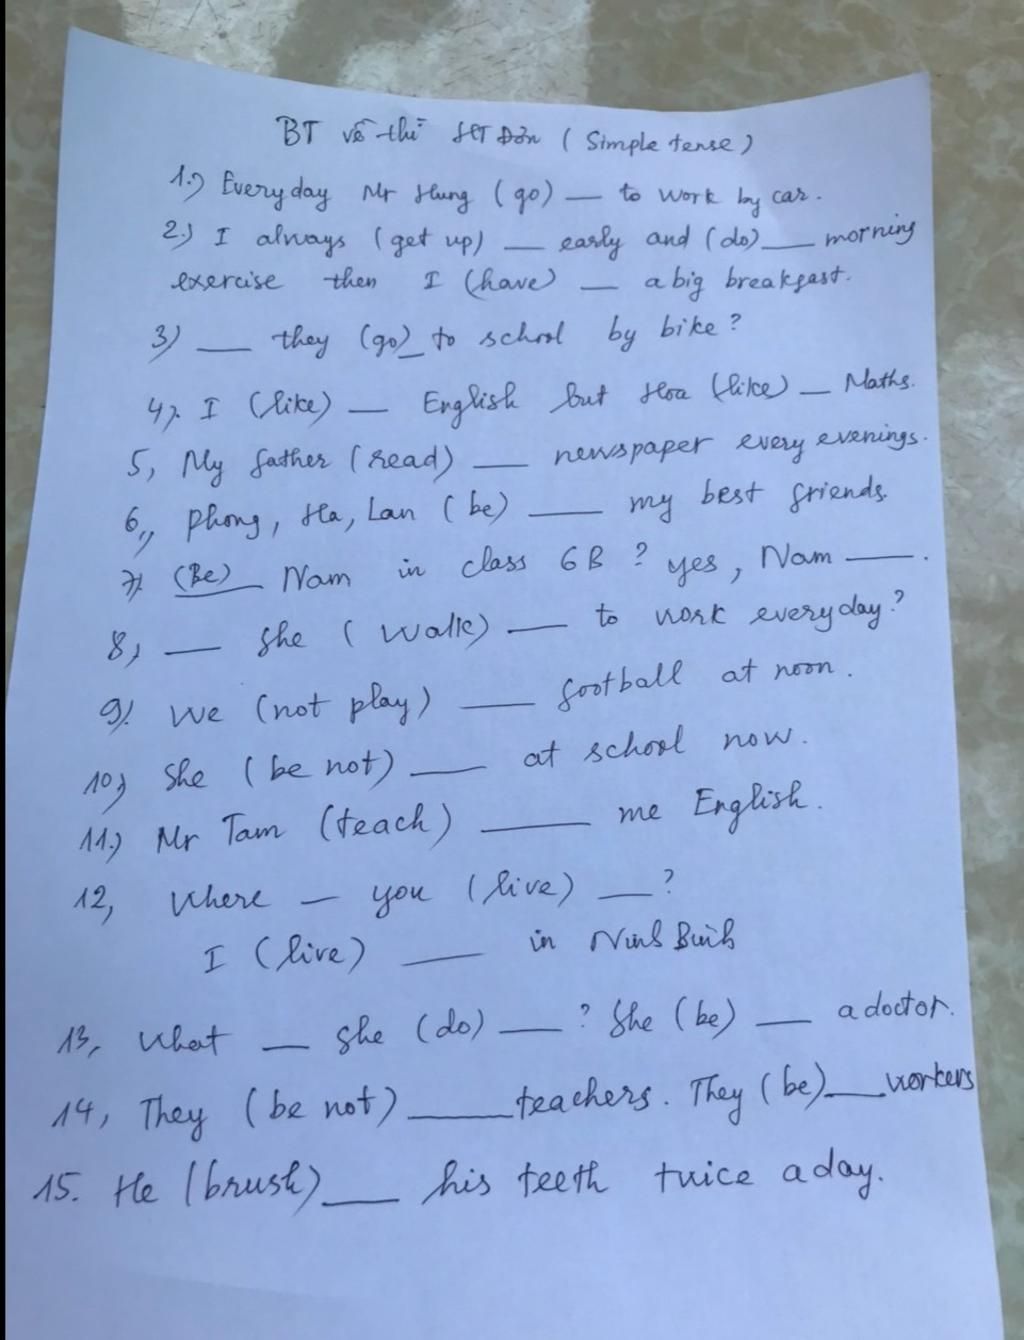 BT về thì HT Đơn (Simple tense)
1.) Everyday Mr Hung (go) — to work by car.
2.) I always (get up) — early and (do) — morning
exercise then I (have) — a big breakfast.
3) — they (go) — to school by bike?
4). I (like) — English but Hoa (like) — Maths.
5, My father (read) — newspaper every evenings.
6,, Phong, Ha, Lan (be) — my best friends.
7). (Be) — Nam in class 6B? yes, Nam —.
8, — she (walk) — to work everyday?
9). We (not play) — football at noon.
10,) She (be not) — at school now.
11.) Mr Tam (teach) — me English.
12, Where — you (live) —?
I (live) — in Ninh Bình
13, What — she (do) —? She (be) — a doctor.
14, They (be not) — teachers. They (be) — workers
15. He (brush) — his teeth twice a day.